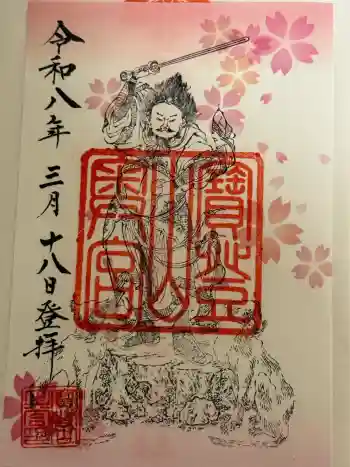 寶登
山
奥宮
令和八年 三月 十八日登拝